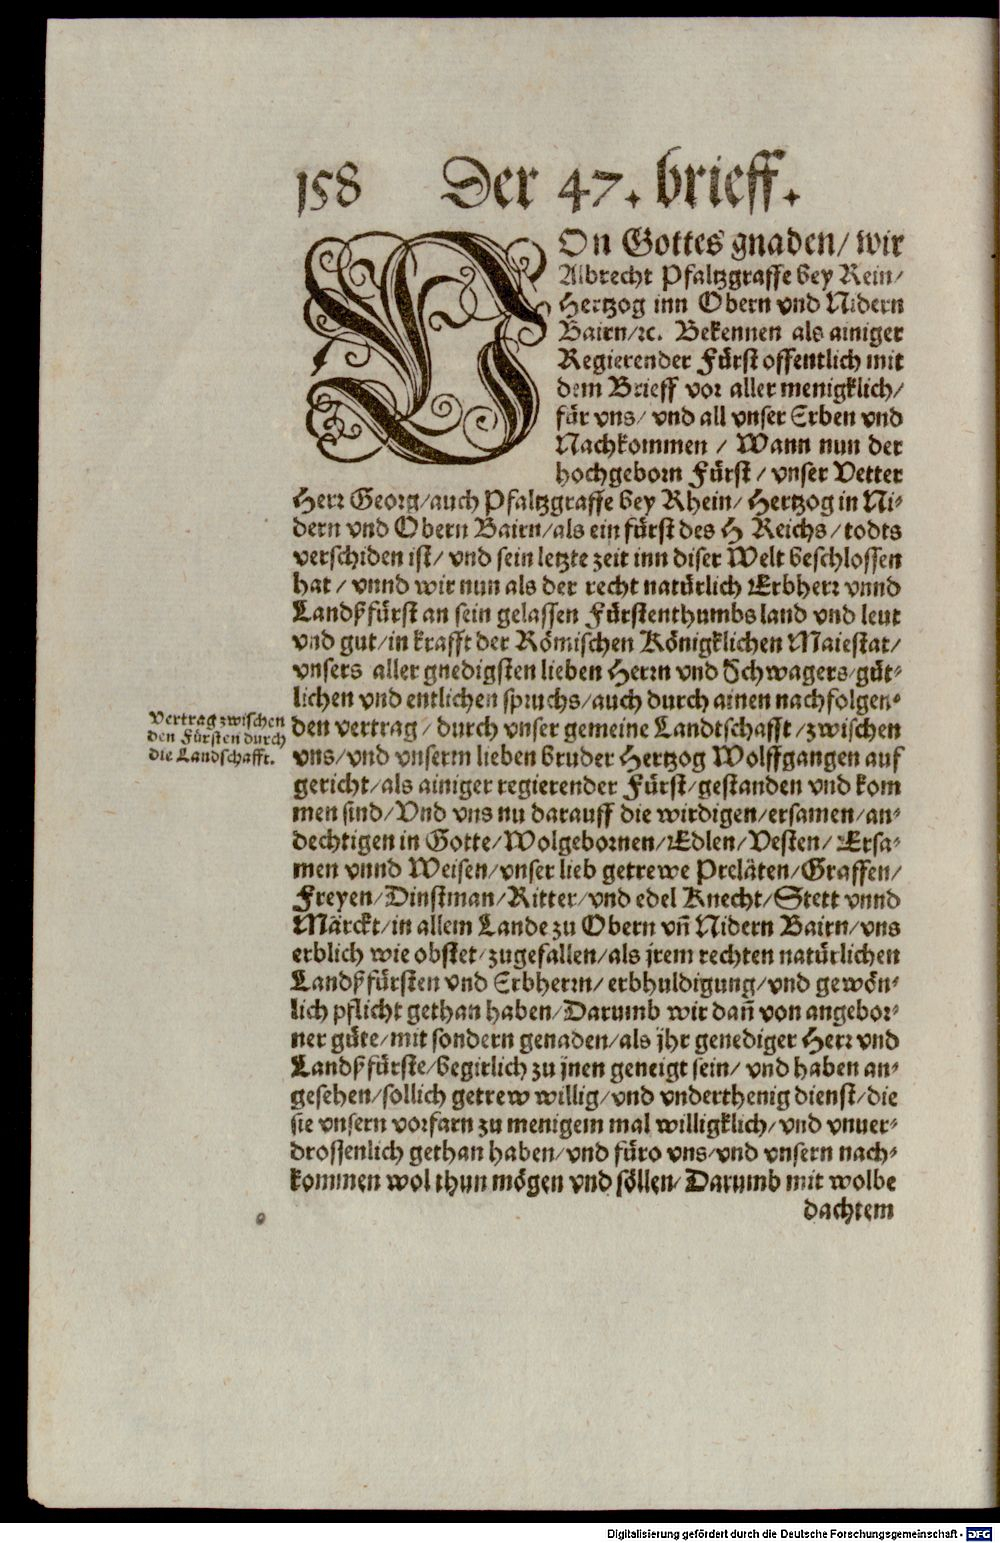 158 Der 47. brieff.
VOn Gottes gnaden/ wir
Albrecht Pfaltzgraffe bey Rein/
Hertzog inn Obern vnd Nidern
Bairn/ꝛc. Bekennen als ainiger
Regierender Fürst offentlich mit
dem Brieff vor aller menigklich/
für vns/ vnd all vnser Erben vnd
Nachkommen / Wann nun der
hochgeborn Fürst / vnser Vetter
Herr Georg/auch Pfaltzgraffe bey Rhein/ Hertzog in Ni-
dern vnd Obern Bairn/als ein fürst des H Reichs/todts
verschiden ist/ vnd sein letzte zeit inn diser Welt beschlossen
hat / vnnd wir nun als der recht natürlich Erbherr vnnd
Landßfürst an sein gelassen Fürstenthumbs land vnd leut
vnd gut/in krafft der Römischen Königklichen Maiestat/
vnsers aller gnedigsten lieben Herrn vnd Schwagers/güt-
lichen vnd entlichen spruchs/auch durch ainen nachfolgen-
Vertrag zwischen
den Fürsten durch
die Landschafft.
den vertrag / durch vnser gemeine Landtschafft/zwischen
vns/vnd vnserm lieben bruder Hertzog Wolffgangen auf
gericht/als ainiger regierender Fürst/gestanden vnd kom
men sind/Vnd vns nu darauff die wirdigen/ersamen/an-
dechtigen in Gotte/Wolgebornen/Edlen/Vesten/ Ersa-
men vnnd Weisen/vnser lieb getrewe Preläten/Graffen/
Freyen/Dinstman/Ritter/vnd edel Knecht/Stett vnnd
Märckt/in allem Lande zu Obern vñ Nidern Bairn/vns
erblich wie obstet/zugefallen/als jrem rechten natürlichen
Landßfürsten vnd Erbherrn/erbhuldigung/vnd gewön-
lich pflicht gethan haben/Darumb wir dañ von angebor-
ner güte/mit sondern genaden/als jhr genediger Herr vnd
Landßfürste/begirlich zu jnen geneigt sein/ vnd haben an-
gesehen/sollich getrew willig/vnd vnderthenig dienst/die
sie vnsern vorfarn zu menigem mal willigklich/vnd vnuer-
drossenlich gethan haben/vnd füro vns/vnd vnsern nach-
kommen wol thun mögen vnd söllen/Darumb mit wolbe
dachtem
Digitalisierung gefördert durch die Deutsche Forschungsgemeinschaft - DFG